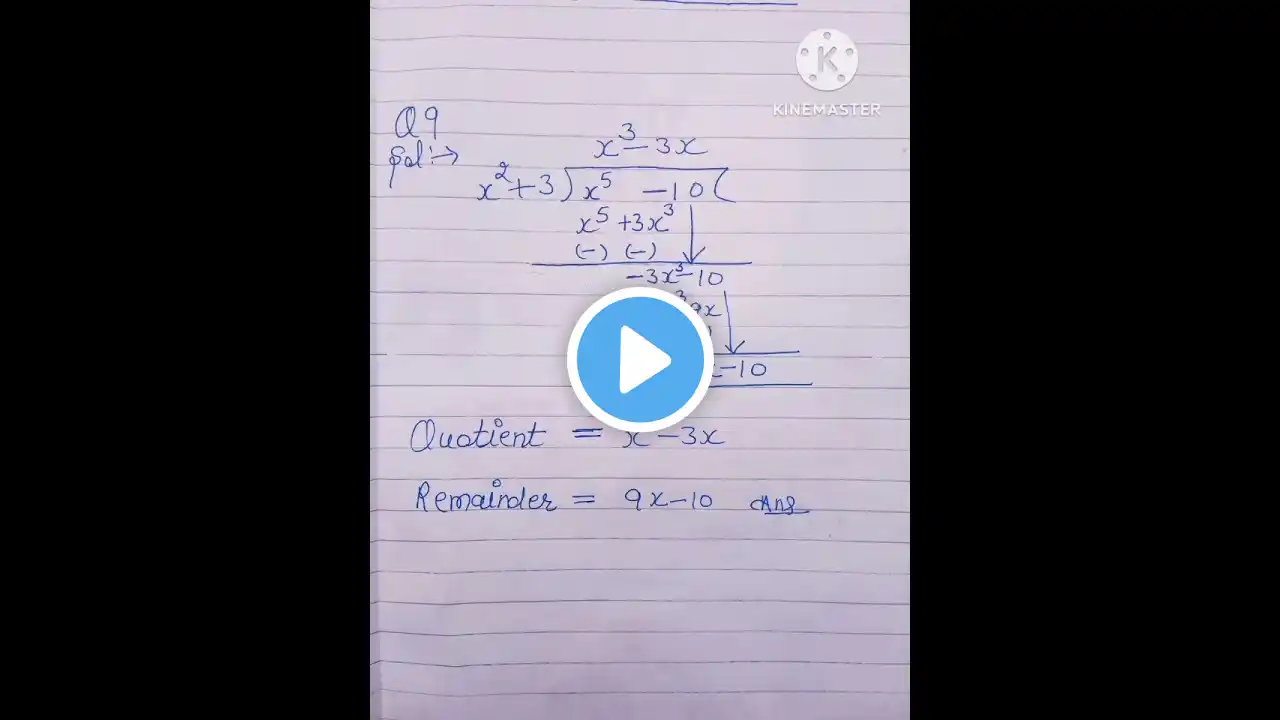 KINEMASTER
Q9
Sol:→
x³ – 3x
x²+3) x⁵ –10(
x⁵ +3x³
(–) (–)
–3x³–10
9x
–10
Quotient = x – 3x
Remainder = 9x–10 Ans